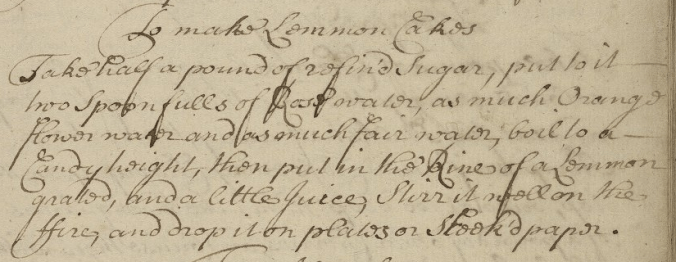 To make Lemmon Cakes
Take half a pound of refin'd Sugar, put to it
two Spoonfulls of Rose water, as much Orange
flower water and as much fair water, boil to a
Candy height, then put in the Rine of a Lemmon
grated, and a little Juice, Stirr it well on the
ffire, and drop it on plates or Sleek'd paper.